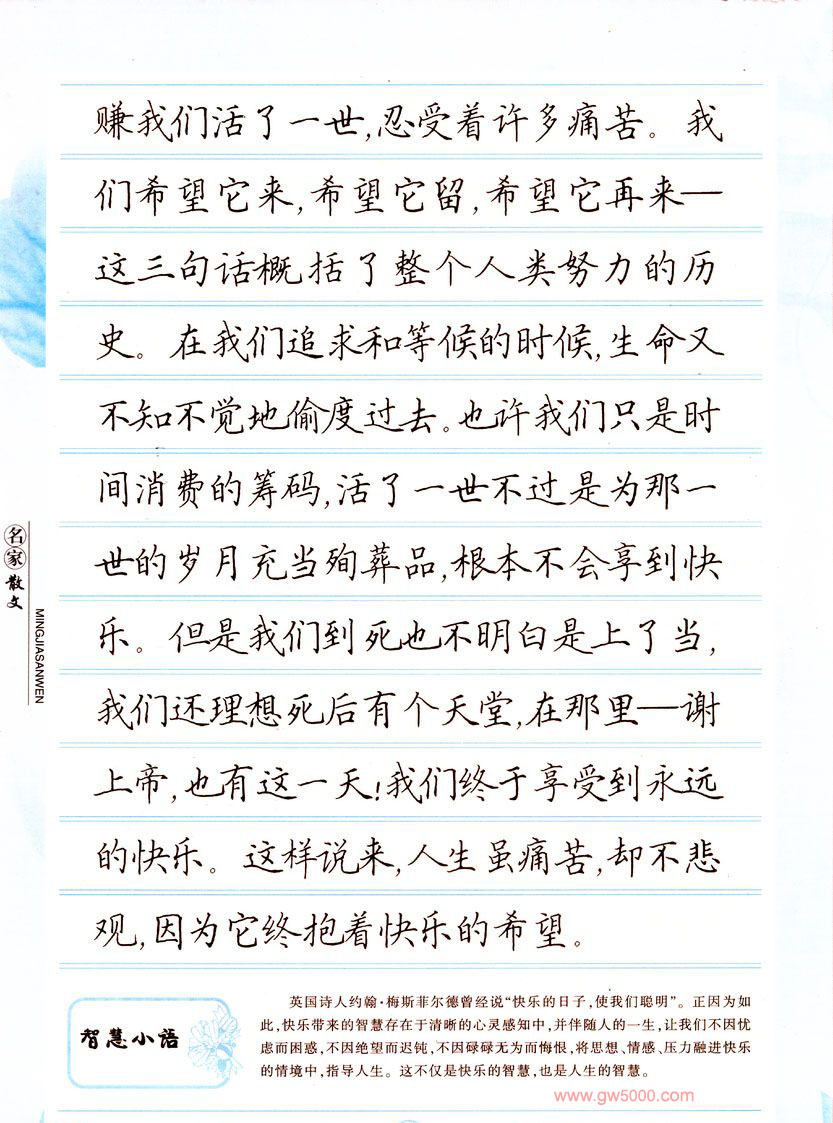 赚我们活了一世,忍受着许多痛苦。我
们希望它来,希望它留,希望它再来—
这三句话概括了整个人类努力的历
史。在我们追求和等候的时候,生命又
不知不觉地偷度过去。也许我们只是时
间消费的筹码,活了一世不过是为那一
世的岁月充当殉葬品,根本不会享到快
乐。但是我们到死也不明白是上了当,
我们还理想死后有个天堂,在那里—谢
上帝,也有这一天!我们终于享受到永远
的快乐。这样说来,人生虽痛苦,却不悲
观,因为它终抱着快乐的希望。
名家散文
MINGJIASANWEN
智慧小语
英国诗人约翰·梅斯菲尔德曾经说“快乐的日子,使我们聪明”。正因为如
此,快乐带来的智慧存在于清晰的心灵感知中,并伴随人的一生,让我们不因忧
虑而困惑,不因绝望而迟钝,不因碌碌无为而悔恨,将思想、情感、压力融进快乐
的情境中,指导人生。这不仅是快乐的智慧,也是人生的智慧。
www.gw5000.com